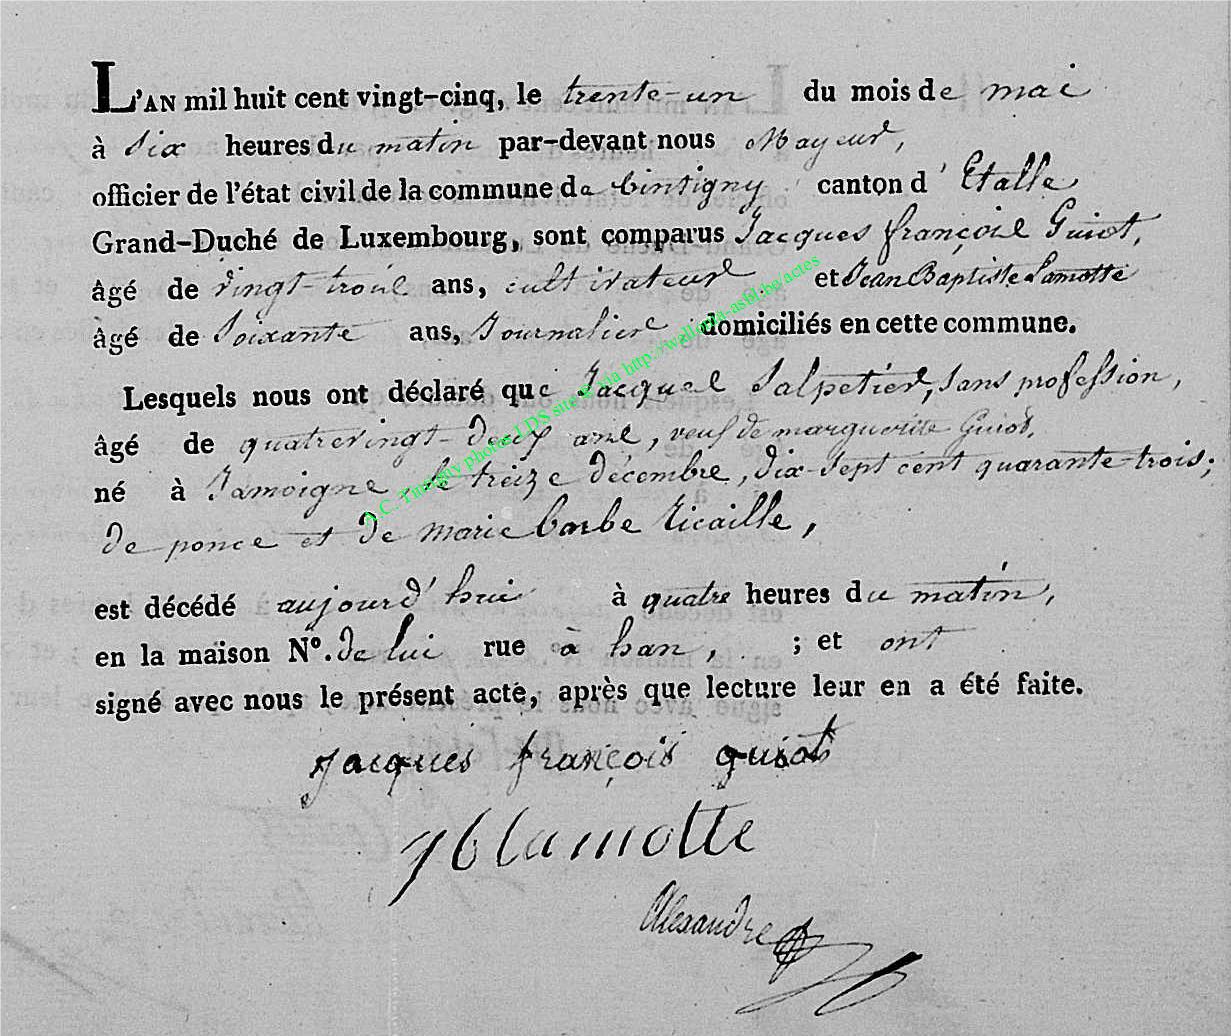 L'AN mil huit cent vingt-cinq, le trente-un du mois de mai
à six heures du matin par-devant nous Mayeur,
officier de l'état civil de la commune de tintigny canton d'Etalle
Grand-Duché de Luxembourg, sont comparus Jacques françois Guiot,
âgé de vingt-trois ans, cultivateur et Jean Baptiste Lamotte
âgé de soixante ans, Journalier domiciliés en cette commune.
Lesquels nous ont déclaré que Jacques Salpetier, sans profession,
âgé de quatrevingt-deux ans, veuf de marguerite Guiot,
né à Jamoigne, le treize décembre, dix-sept cent quarante-trois;
de ponce et de marie barbe Ricaille,
est décédé aujourd'hui à quatre heures du matin,
en la maison N°. de lui rue à han, ; et ont
signé avec nous le présent acte, après que lecture leur en a été faite.
Jacques françois guiot
JB lamotte
Alexandre
A.C. Tintigny photos LDS site @ via http://wallonia-asbl.be/actes